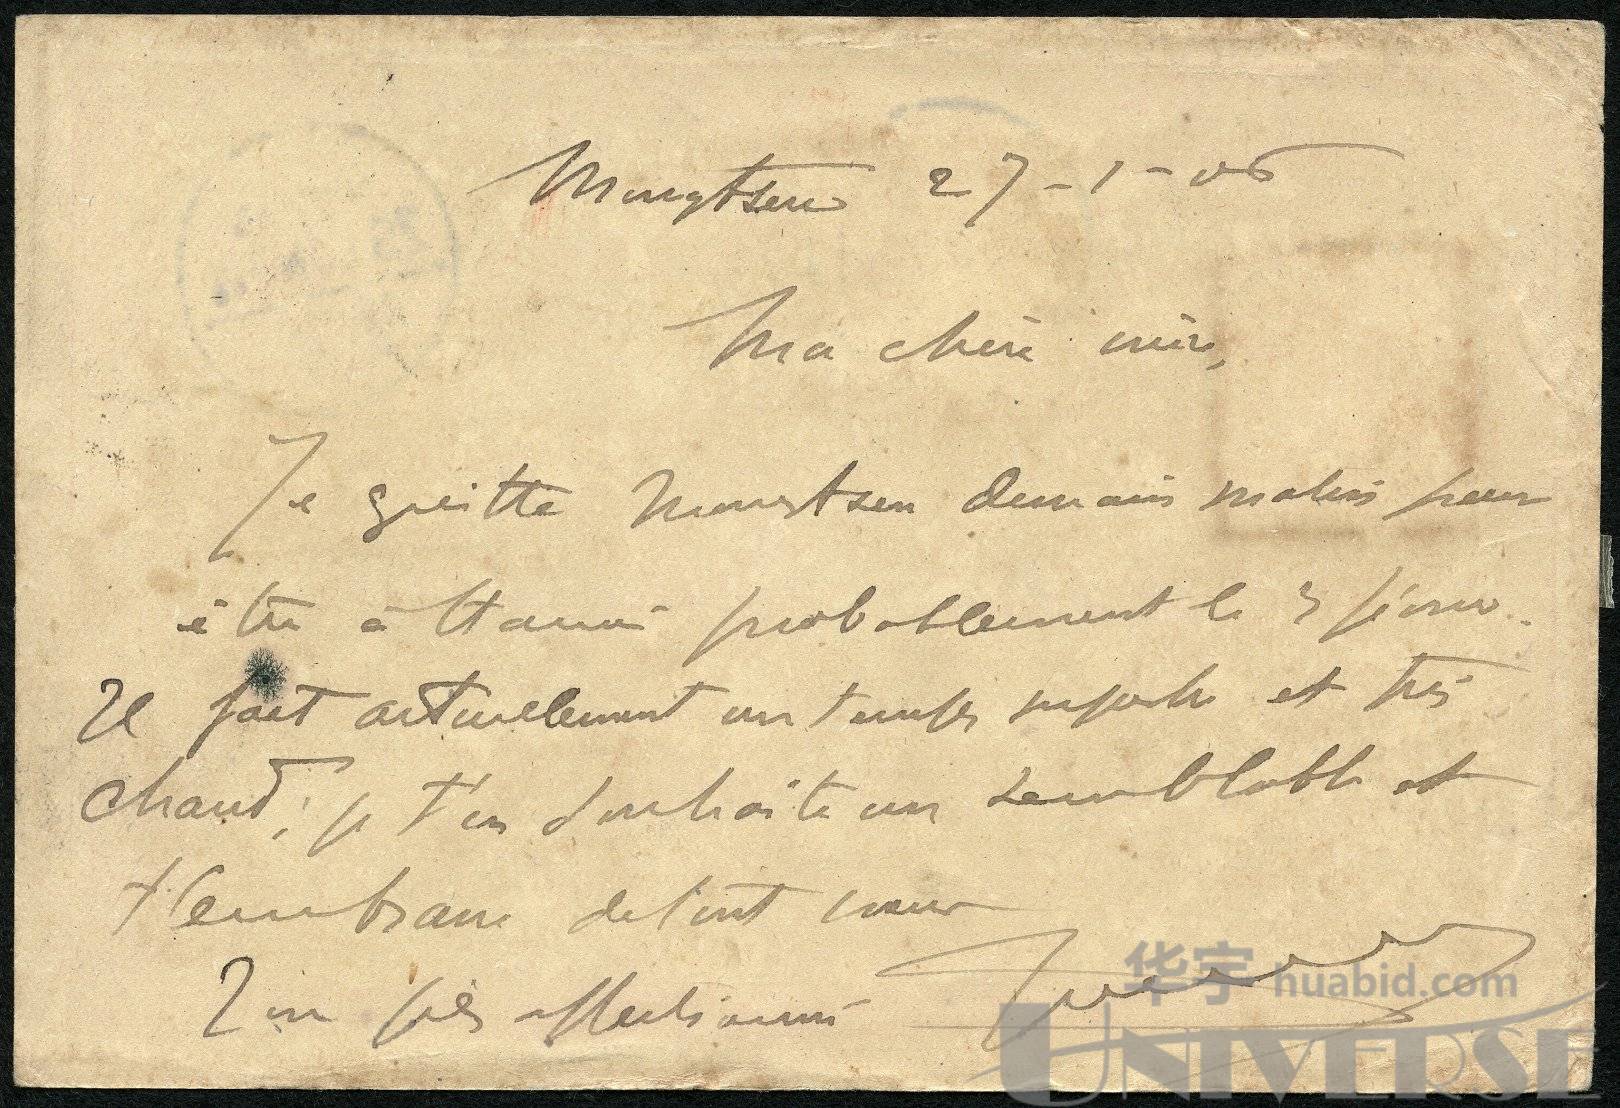 Mongtseu 27-1-06
Ma chère mère,
Je quitte Mongtseu demain matin pour
être à Hanoi probablement le 3 février.
Il fait actuellement un temps superbe et très
chaud; je t'en souhaite un semblable et
t'embrasse de tout coeur
Ton fils affectionné
华宇 huabid.com
UNIVERSE